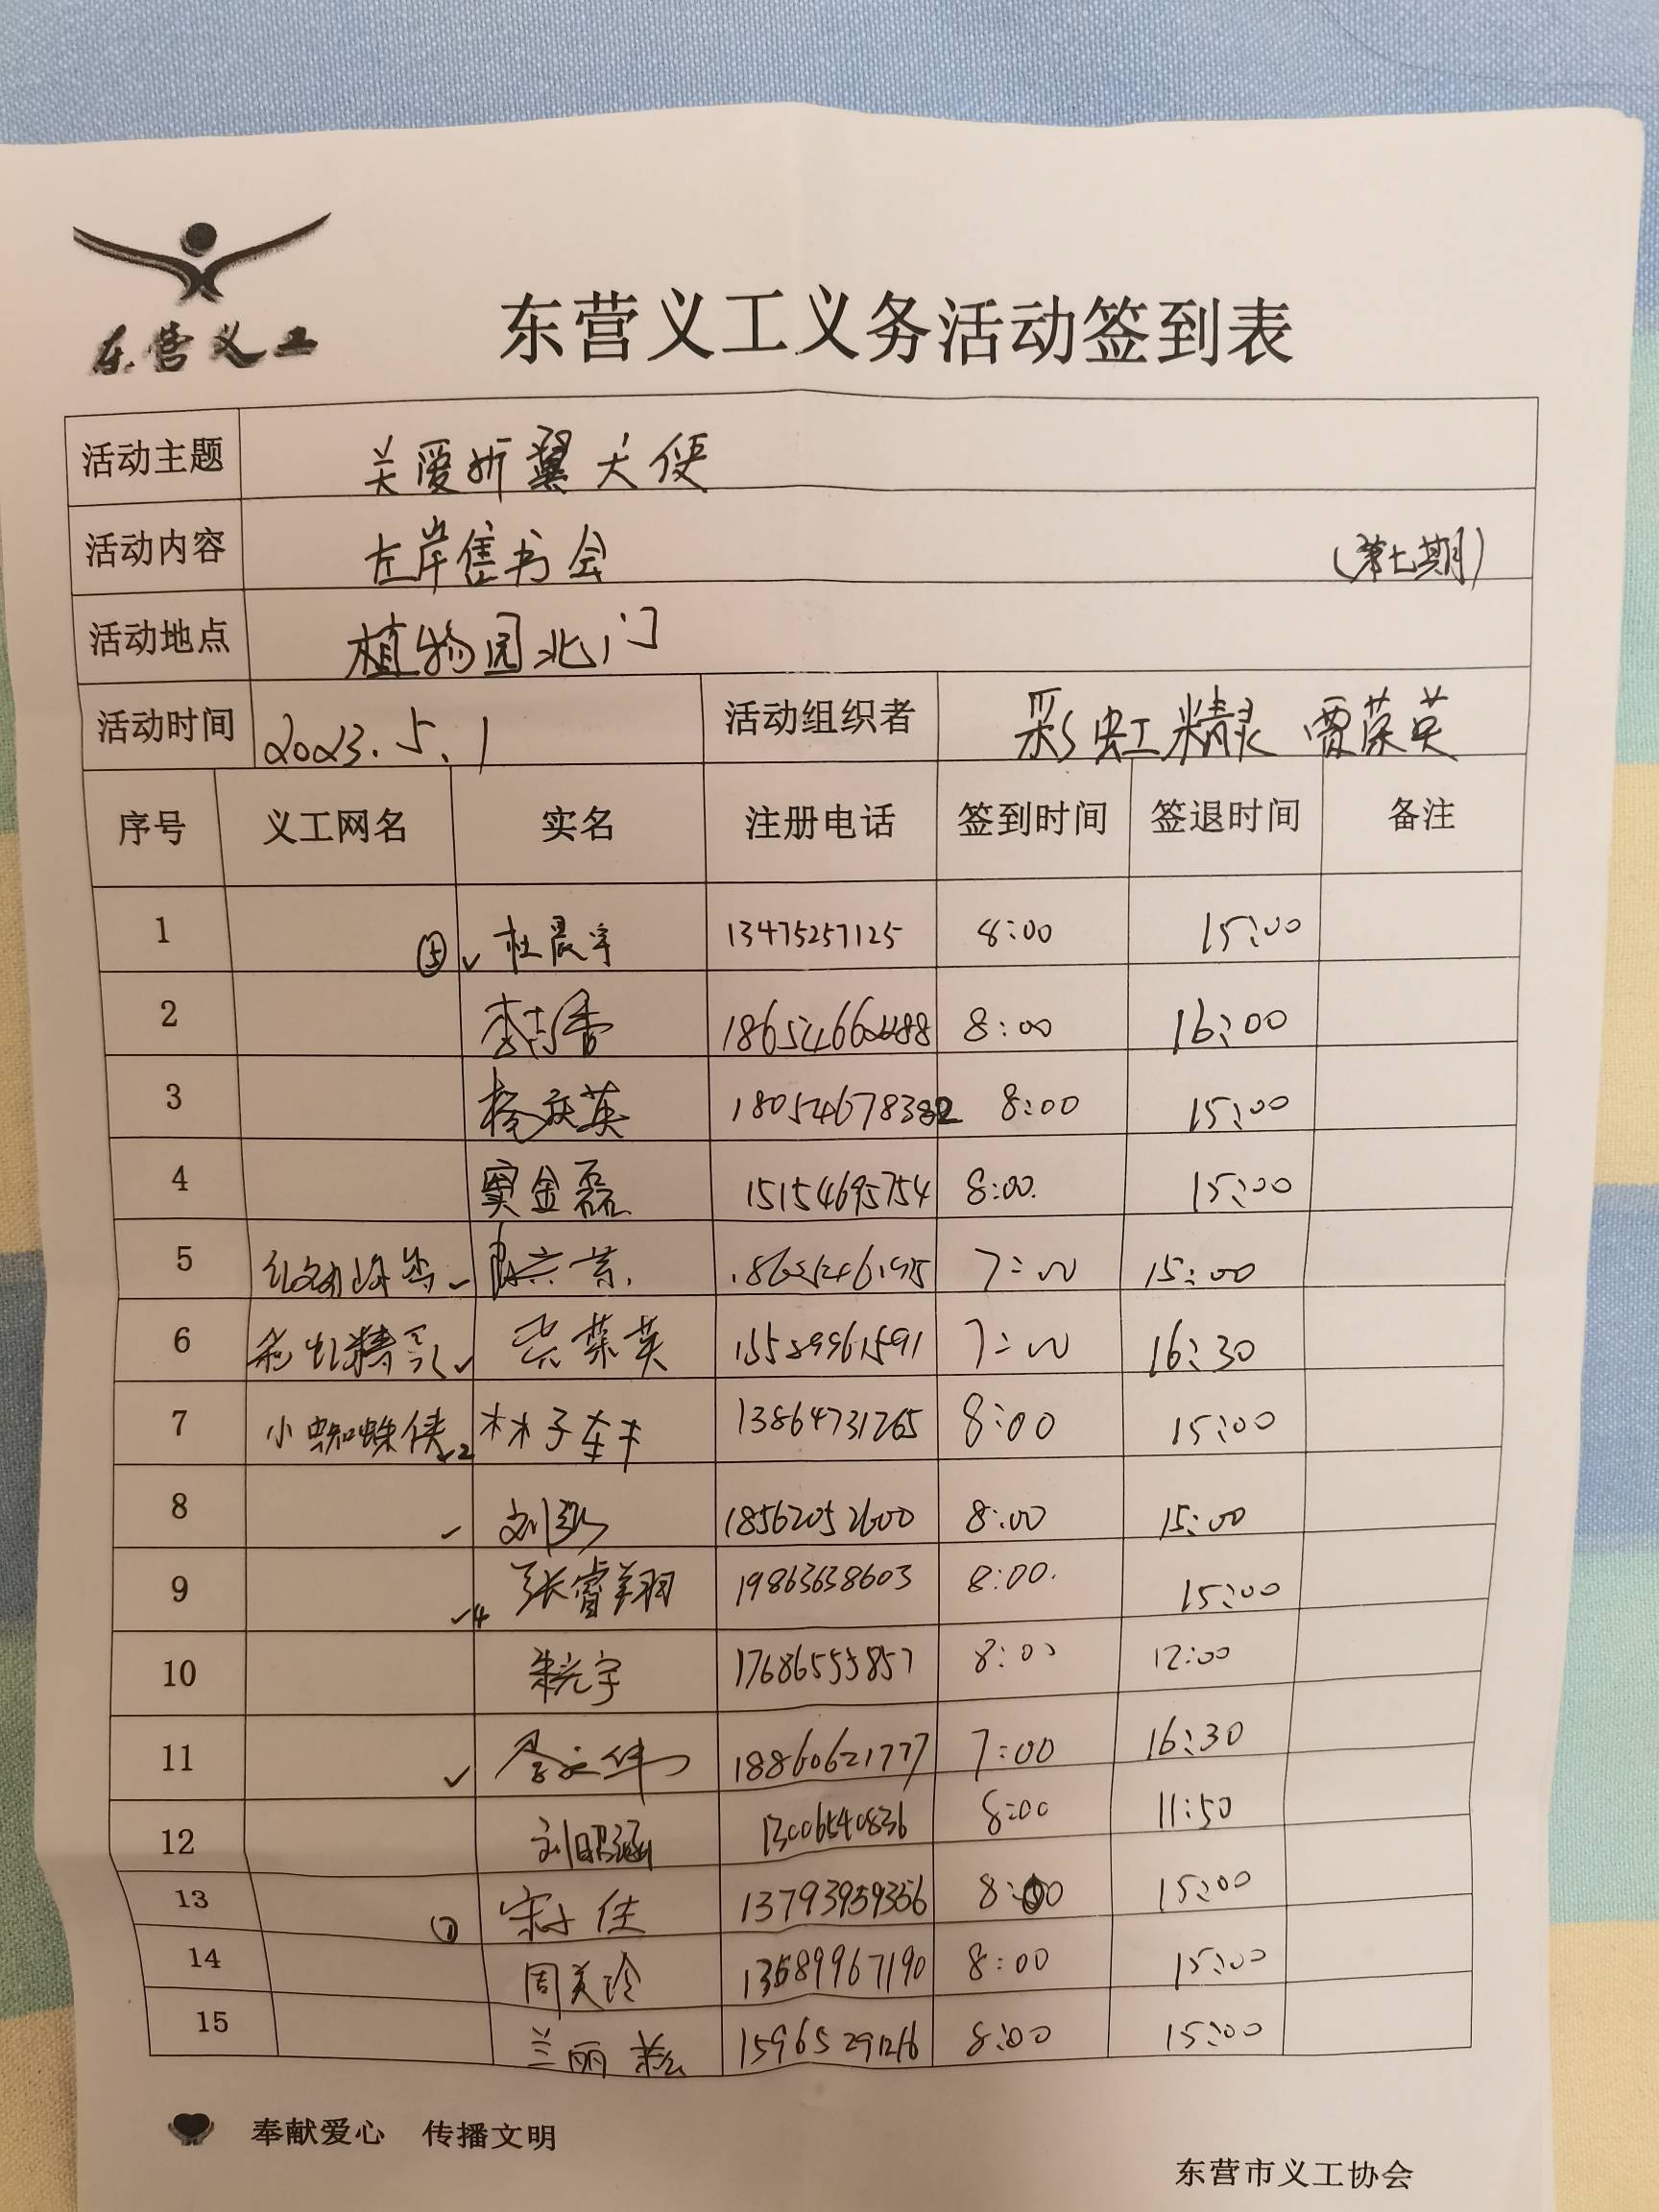 东营义工
东营义工义务活动签到表
活动主题 关爱折翼天使
活动内容 左岸售书会 (第七期)
活动地点 植物园北门
活动时间 2023.5.1 活动组织者 彩虹精灵 贾荣英
序号 义工网名 实名 注册电话 签到时间 签退时间 备注
1 ⑤ ✓ 杜晨宇 13475257125 8:00 15:00
2 8:00 16:00
3 杨庆英 8:00 15:00
4 窦金磊 15154695754 8:00. 15:00
5 ✓ 7:00 15:00
6 彩虹精灵 ✓ 荣英 7:00 16:30
7 小蜘蛛侠 ✓2 林子 13864731265 8:00 15:00
8 ✓ 18562052600 8:00 15:00
9 ✓4 张睿翔 19863638603 8:00. 15:00
10 朱光宇 17686555857 8:00 12:00
11 ✓ 18860621777 7:00 16:30
12 刘昭涵 13006540836 8:00 11:50
13 ① 13793959356 8:00 15:00
14 周美玲 13589967190 8:00 15:00
15 兰丽 8:00 15:00
奉献爱心 传播文明
东营市义工协会